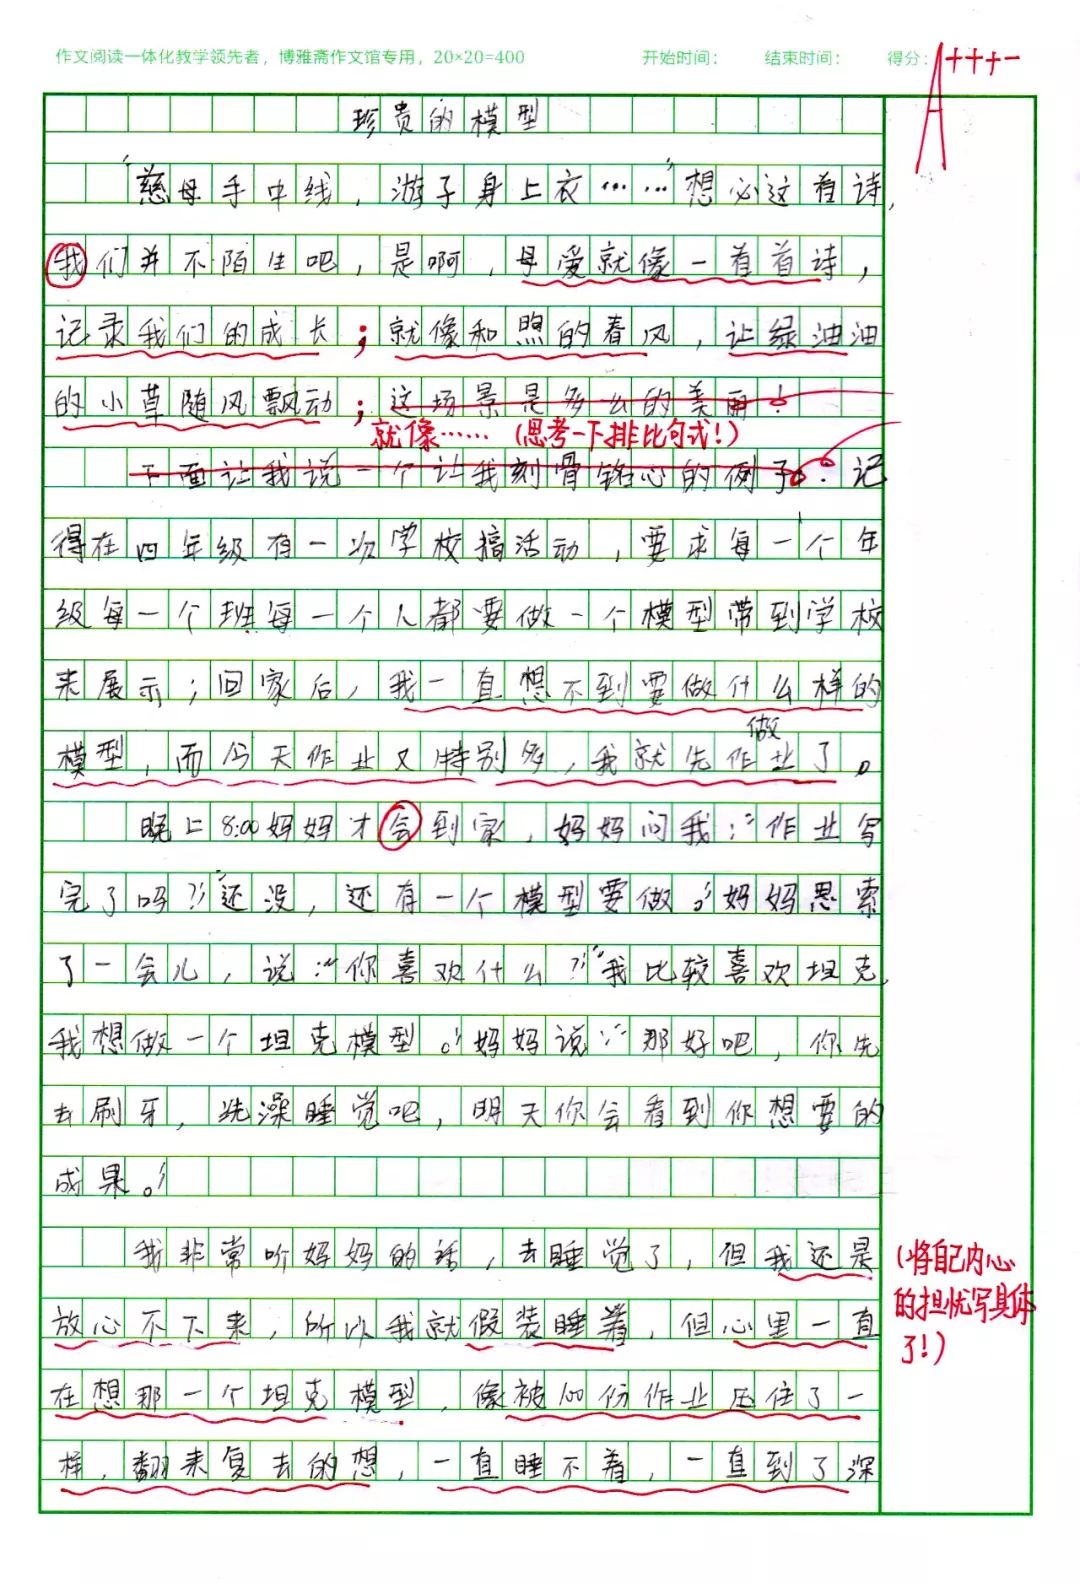 作文阅读一体化教学领先者，博雅斋作文馆专用，20×20=400 开始时间： 结束时间： 得分：A+++-
珍贵的模型
“慈母手中线，游子身上衣……”想必这首诗，
我们并不陌生吧，是啊，母爱就像一首首诗，
记录我们的成长；就像和煦的春风，让绿油油
的小草随风飘动；这场景是多么的美丽！
就像……（思考一下排比句式！）
下面让我说一个让我刻骨铭心的例子：记
得在四年级有一次学校搞活动，要求每一个年
级每一个班每一个人都要做一个模型带到学校
来展示；回家后，我一直想不到要做什么样的
做
模型，而今天作业又特别多，我就先作业了。
晚上8:00妈妈才会到家，妈妈问我：“作业写
完了吗？”“还没，还有一个模型要做。”妈妈思索
了一会儿，说：“你喜欢什么？”“我比较喜欢坦克，
我想做一个坦克模型。”妈妈说：“那好吧，你先
去刷牙，洗澡睡觉吧，明天你会看到你想要的
成果。”
我非常听妈妈的话，去睡觉了，但我还是
放心不下来，所以我就假装睡着，但心里一直
在想那一个坦克模型，像被100份作业压住了一
样，翻来复去的想，一直睡不着，一直到了深
（将自己内心
的担忧写具体
了！）